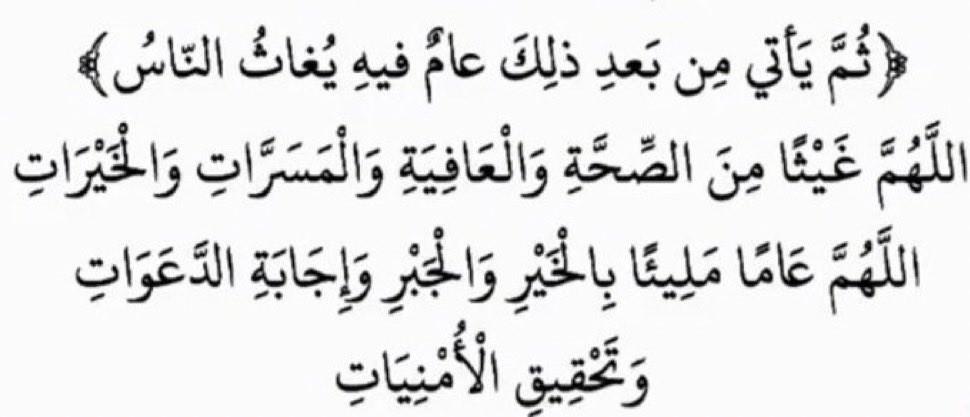 ﴿ثُمَّ يَأتي مِن بَعدِ ذلِكَ عامٌ فيهِ يُغاثُ النّاسُ﴾
اللَّهُمَّ غَيْثًا مِنَ الصِّحَّةِ وَالْعَافِيَةِ وَالْمَسَرَّاتِ وَالْخَيْرَاتِ
اللَّهُمَّ عَامًا مَلِيئًا بِالْخَيْرِ وَالْجَبْرِ وَإِجَابَةِ الدَّعَوَاتِ
وَتَحْقِيقِ الْأُمْنِيَاتِ